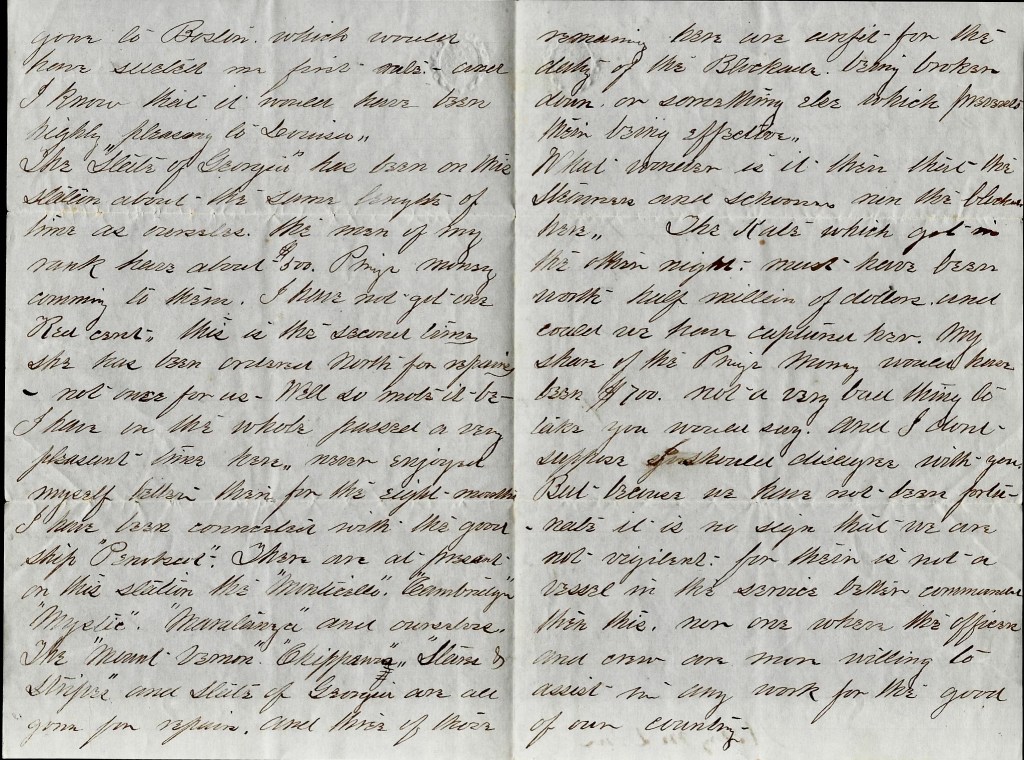 gone to Boston. which would
have suited me first rate. and
I know that it would have been
highly pleasing to Louisa,,
The "State of Georgia" has been on this
station about the same lenght of
time as ourseles. the men of my
rank have about $500. Prize money
comming to them. I have not got one
Red cent,, this is the second time
she has been ordered North for repairs
- not once for us - Well so mote it be -
I have on the whole passed a very
pleasant time here,, never enjoyed
myself better then for the eight months
I have been connected with the good
ship "Penobscot". There are at present
on this station the "Monticello". "Cambridge"
"Mystic". "Maratanza" and ourselves.
The "Mount Vernon". "Chippewa",, "Stars &
Stripes" and State of Georgia are all
gone for repair. and three of those
remaing here are unfit for the
duty of the Blockade. being broken
down. or something else which prevents
them being effective,,
What wonder is it then that the
Steamers and schooners run the blockade
here,, The Kate which got in
the other night. must have been
worth half million of dollars. and
could we have captured her. My
share of the Prize Money would have
been $700. not a very bad thing to
take you would say. and I dont
suppose I should disagree with you.
But because we have not been fortu-
-nate it is no sign that we are
not vigilent. for their is not a
vessel in the service better commanded
then this. nor one where the officers
and crew are more willing to
assist in any work for the good
of our country -